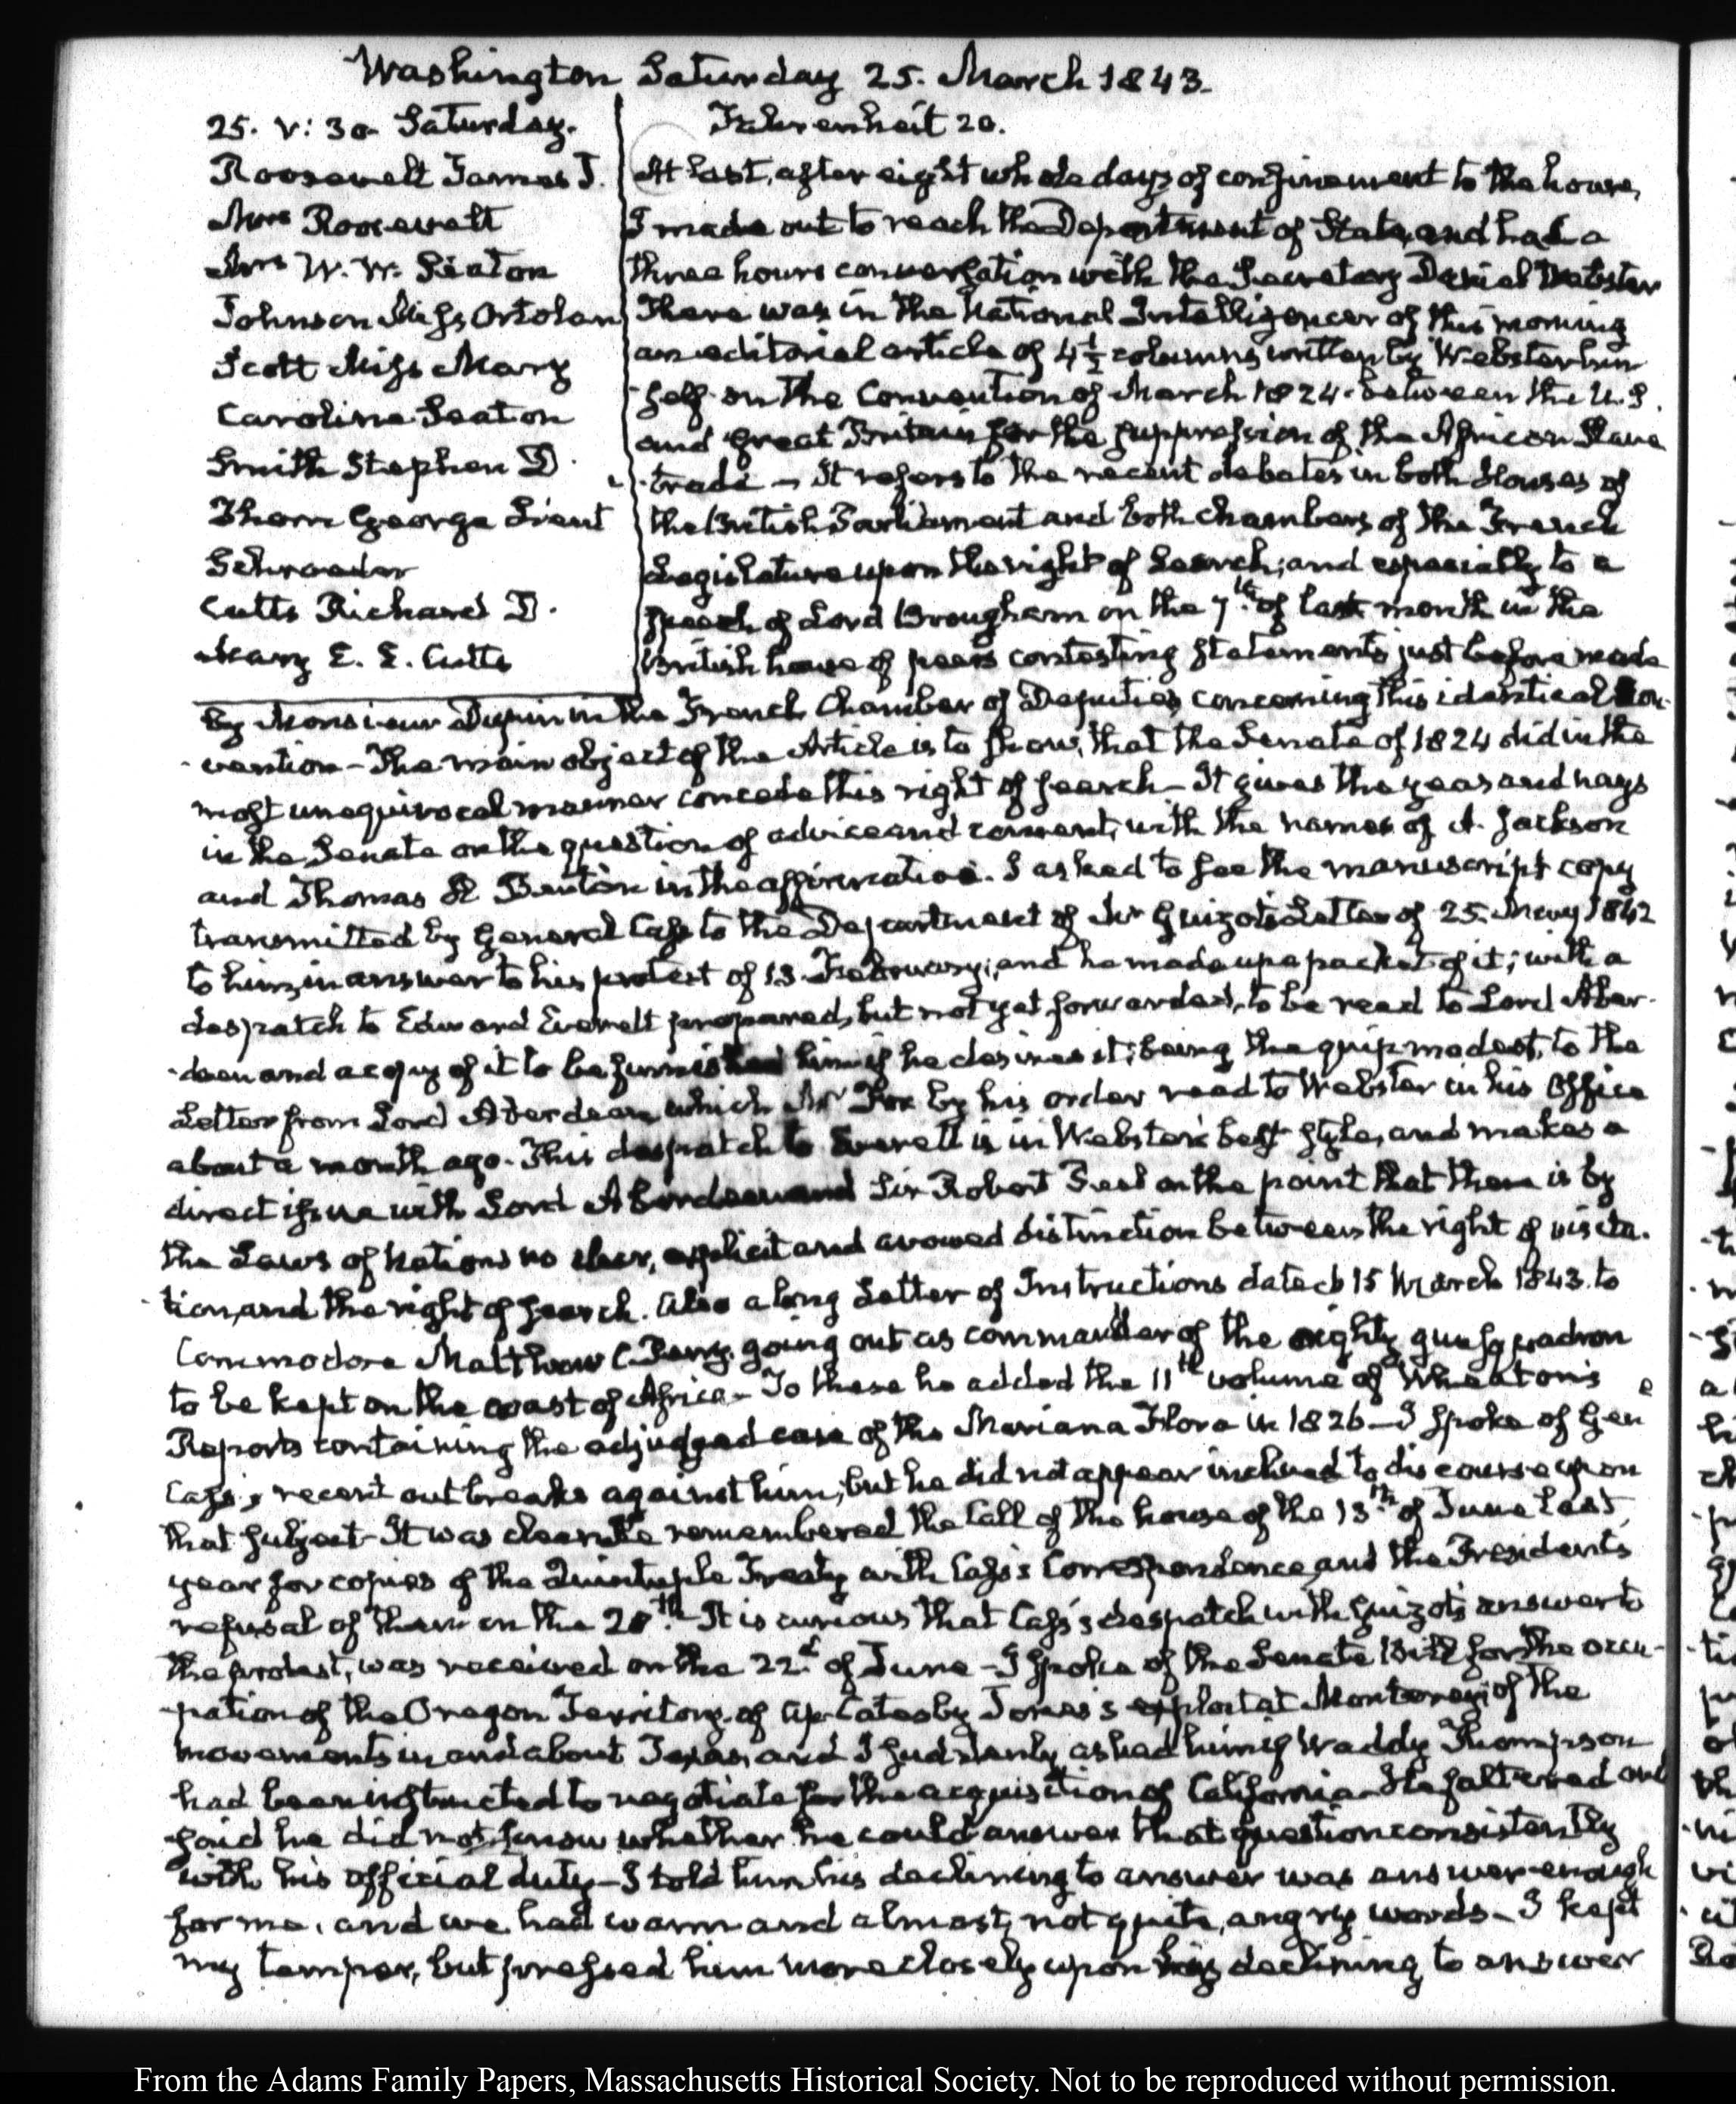 Washington Saturday 25. March 1843.
25. V: 30. Saturday.
Roosevelt James I.
Mrs Roosevelt
Mrs W. W. Seaton
Johnson Miss Ortolan
Scott Miss Mary
Caroline Seaton
Smith Stephen D.
Thom George Lieut
Schroeder
Cutts Richard D.
Mary E. E. Cutts
Fahrenheit 20.
At last, after eight whole days of confinement to the house,
I made out to reach the Department of State, and had a
three hours conversation with the Secretary Daniel Webster
There was in the National Intelligencer of this morning
an editorial article of 4½ columns written by Webster him
self on the Convention of March 1824. between the U.S.
and Great Britain for the suppression of the African Slave
trade — It refers to the recent debates in both Houses of
the British Parliament and both chambers of the French
Legislature upon the right of Search; and especially to a
speech of Lord Brougham on the 7th of last month in the
British house of peers contesting statements just before made
by Monsieur Dupin in the French Chamber of Deputies concerning this identical Con-
vention — The main object of the Article is to show, that the Senate of 1824 did in the
most unequivocal manner concede this right of search — It gives the yeas and nays
in the Senate on the question of advice and consent, with the names of A. Jackson
and Thomas H. Benton in the affirmative. I asked to see the manuscript copy
transmitted by General Cass to the Department of Mr Guizot's Letter of 25. May 1842
to him, in answer to his protest of 13. February; and he made up a packet of it; with a
despatch to Edward Everett prepared, but not yet forwarded, to be read to Lord Aber-
-deen and a copy of it to be furnished him if he desires it; being the quip modest, to the
Letter from Lord Aberdeen which Mr Fox by his order read to Webster in his Office
about a month ago. This despatch to Everett is in Webster's best style, and makes a
direct issue with Lord Aberdeen and Sir Robert Peel on the point that there is by
the Laws of Nations no clear, explicit and avowed distinction between the right of visita-
-tion, and the right of search. Also a long Letter of Instructions dated 15 March 1843. to
Commodore Matthew C. Perry, going out as commander of the eighty gun squadron
to be kept on the coast of Africa — To these he added the 11th volume of Wheaton's
Reports containing the adjudged case of the Mariana Flora in 1826 — I spoke of Gen
Cass's recent outbreaks against him; but he did not appear inclined to discourse upon
that subject — It was clear he remembered the Call of the house of the 13th of June last
year for copies of the Quintuple Treaty with Cass's Correspondence and the President's
refusal of them on the 20th — It is curious that Cass's despatch with Guizot's answer to
the protest, was received on the 22d of June — I spoke of the Senate Bill for the occu-
-pation of the Oregon Territory, of Ap Catesby Jones's exploit at Monterey; of the
movements in and about Texas, and I suddenly asked him if Waddy Thompson
had been instructed to negotiate for the acquisition of California — He faltered and
said he did not know whether he could answer that question consistently
with his official duty — I told him his declining to answer was answer enough
for me, and we had warm and almost, not quite, angry words — I kept
my temper, but pressed him more closely upon his declining to answer
From the Adams Family Papers, Massachusetts Historical Society. Not to be reproduced without permission.